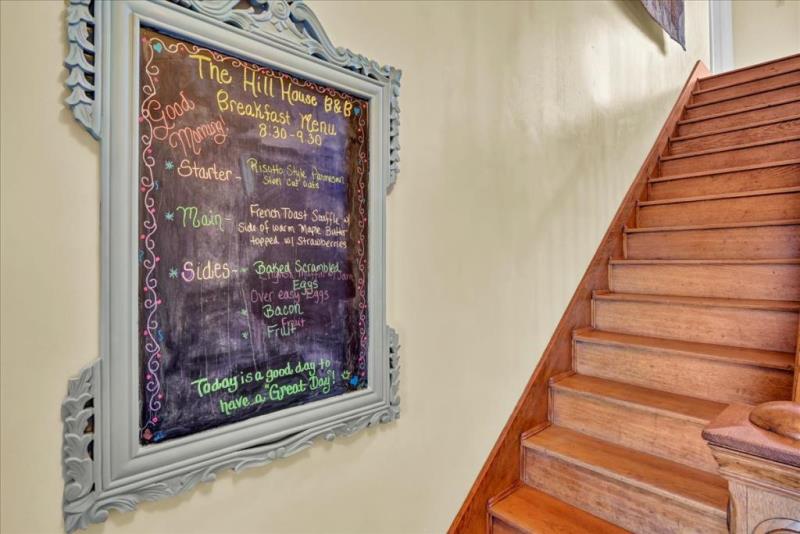 The Hill House B&B
Good
Morning!
Breakfast Menu
8:30-9:30
*Starter- Risotto Style Parmesan
Steel Cut Oats
*Main- French Toast Souffle w/
side of warm Maple Butter
topped w/ Strawberries
*Sides- Baked Scrambled
English Muffin w/ Jam
Eggs
Over easy Eggs
Bacon
Fruit
Fruit
Today is a good day to
have a "Great Day"!